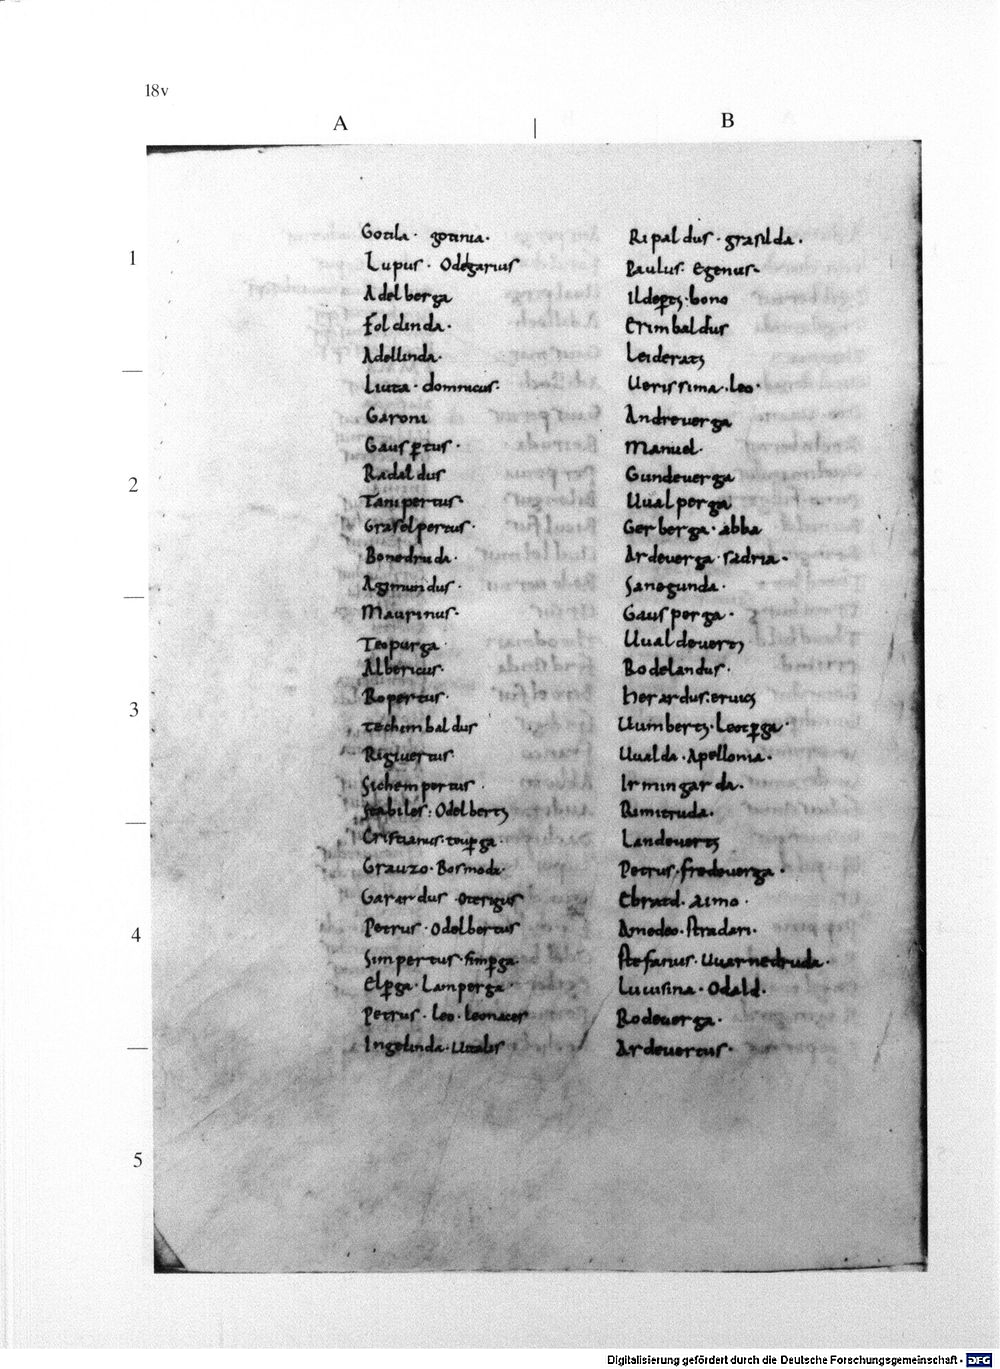 18v
A
B
1
2
3
4
5
Gotila · gotinia ·
Lupus · Odegarius
Adelberga
Foldinda ·
Adellinda ·
Liuta · dominicus ·
Garoni
Gausp̄tus ·
Radaldus
Tanipertus ·
Graselpertus ·
Bonedruda ·
Agimundus ·
Maurinus ·
Teopurga ·
Albericus ·
Ropertus ·
techimbaldus
Rigiuertus ·
Sichempertus ·
Stabiles : Odelbertꝫ
Cristianus · teup̱ga ·
Grauzo · Bosmoda ·
Garardus · Oterigus
Petrus · Odelbertus
Simpertus · simp̱ga ·
Elp̱ga · Lamperga ·
Petrus · leo · leonaces
Ingelinda · Uitalis
Ripaldus · grasilda ·
Paulus : Egenus ·
Ildep̱tꝫ · bono
Erimbaldus
Leideratꝫ
Uerissima · leo ·
Andreuerga
Manuel ·
Gundeuerga
Uualperga
Gerberga · abba
Ardeuerga · sadria ·
Sanegunda ·
Gausperga ·
Uualdeuertꝫ
Rodelandus ·
herardus : eruicꝫ
Uumbertꝫ · Leotp̱ga ·
Uualda · Apellonia ·
Irmingarda ·
Rimitruda ·
Landeuertꝫ
Petrus · fredeuerga ·
Ebratd · aimo ·
Amedeo · stradari ·
stefanus · Uuarnedruda ·
Liuisina · Odald ·
Rodeuerga ·
Ardeuertus ·
Digitalisierung gefördert durch die Deutsche Forschungsgemeinschaft - DFG